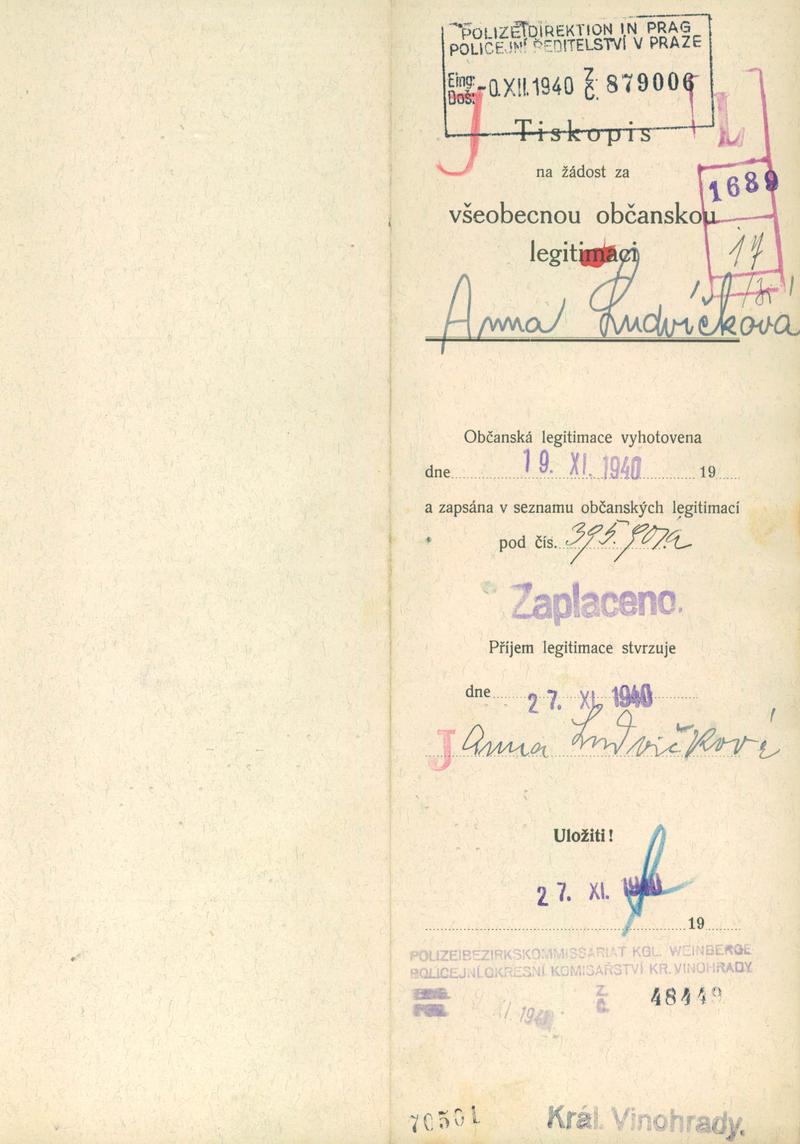 POLIZEIDIREKTION IN PRAG
POLICEJNÍ ŘEDITELSTVÍ V PRAZE
Eing.
Doš. -0.XII.1940 Z. Č. 879006
J
L
Tiskopis
na žádost za
1689
všeobecnou občanskou
legitimaci
17
Anna Ludvíčková
Občanská legitimace vyhotovena
dne 19. XI. 1940 19
a zapsána v seznamu občanských legitimací
pod čís. 395.907
Zaplaceno.
Příjem legitimace stvrzuje
dne 27. XI. 1940
J Anna Ludvíčková
Uložiti!
27. XI. 1940
19
POLIZEIBEZIRKSKOMMISSARIAT KGL. WEINBERGE
POLICEJNÍ OKRESNÍ KOMISAŘSTVÍ KR. VINOHRADY
Z.
Č. 48449
70501 Král. Vinohrady.